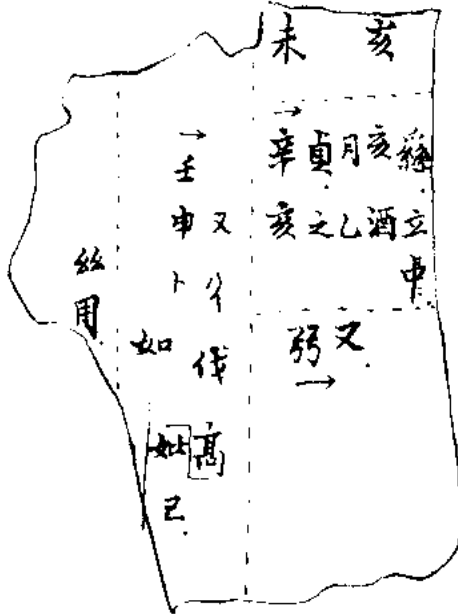 未 亥
辛亥
貞之
月乙
亥酒
立中
弜又
壬申卜
又彳伐高
如
妣己
用